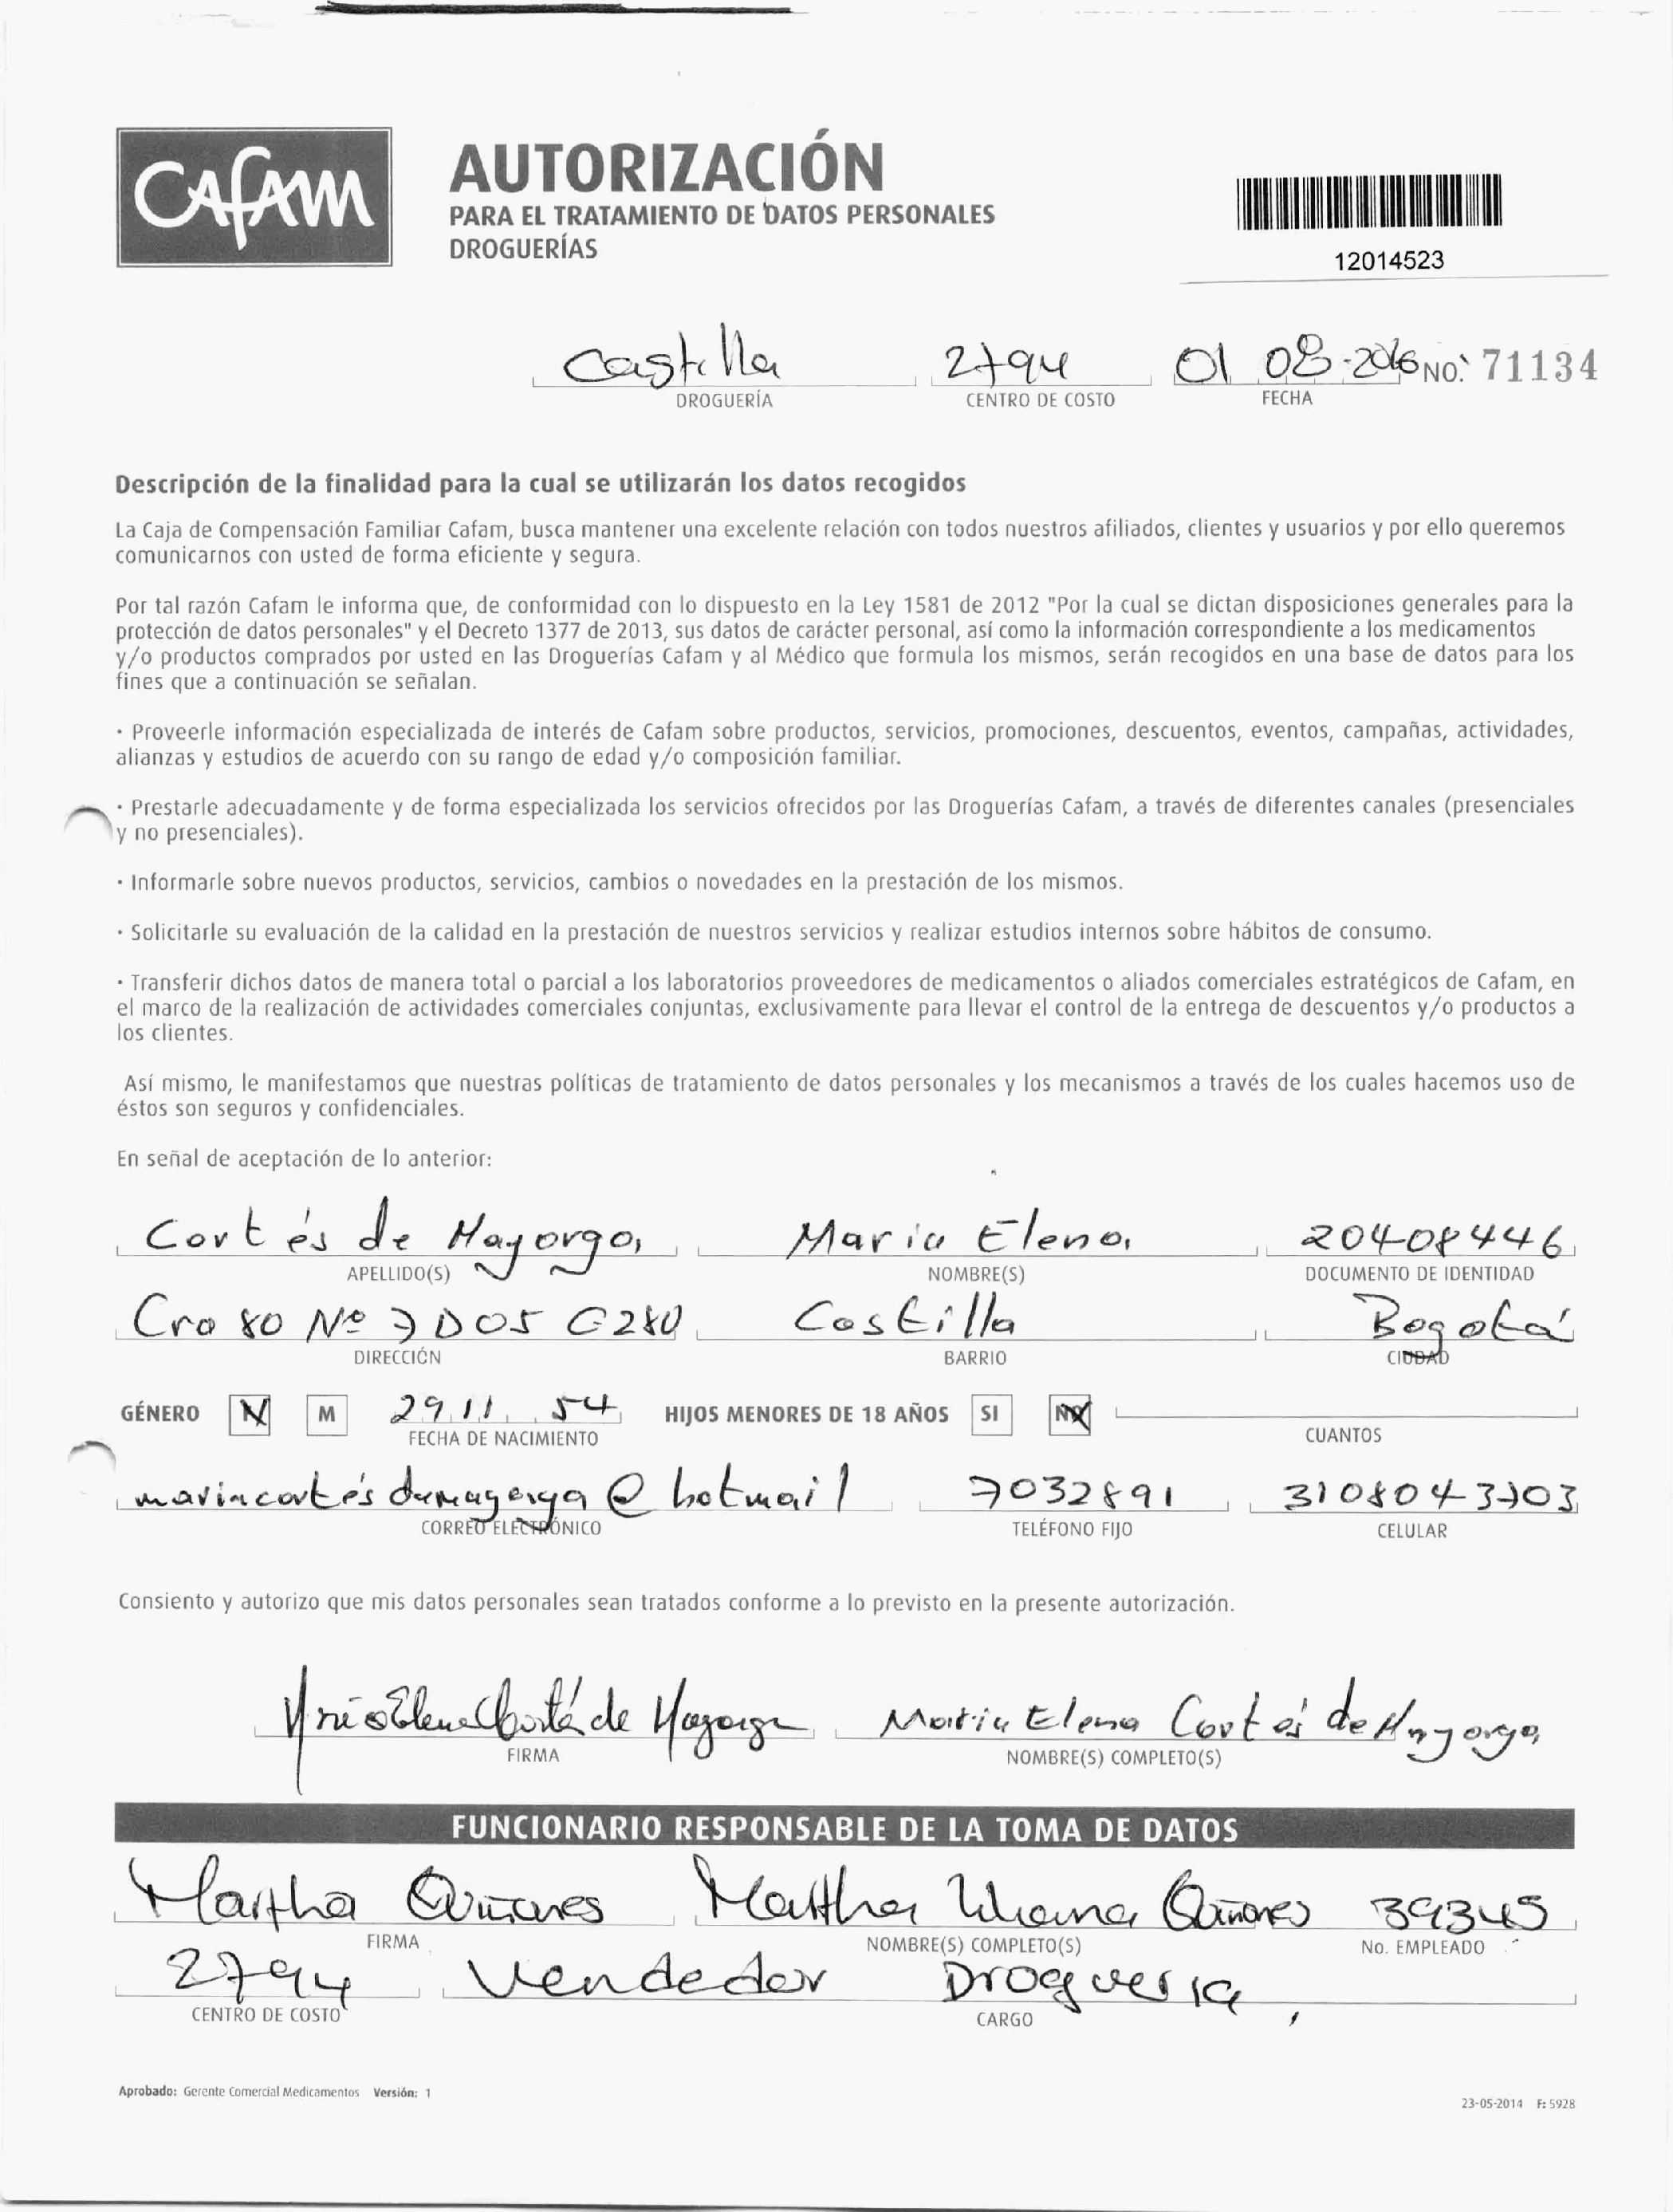 CAFAM
AUTORIZACIÓN
PARA EL TRATAMIENTO DE DATOS PERSONALES
DROGUERÍAS
12014523
Castilla 2794 01 08-2016 NO. 71134
DROGUERÍA CENTRO DE COSTO FECHA
Descripción de la finalidad para la cual se utilizarán los datos recogidos
La Caja de Compensación Familiar Cafam, busca mantener una excelente relación con todos nuestros afiliados, clientes y usuarios y por ello queremos
comunicarnos con usted de forma eficiente y segura.
Por tal razón Cafam le informa que, de conformidad con lo dispuesto en la Ley 1581 de 2012 "Por la cual se dictan disposiciones generales para la
protección de datos personales" y el Decreto 1377 de 2013, sus datos de carácter personal, así como la información correspondiente a los medicamentos
y/o productos comprados por usted en las Droguerías Cafam y al Médico que formula los mismos, serán recogidos en una base de datos para los
fines que a continuación se señalan.
· Proveerle información especializada de interés de Cafam sobre productos, servicios, promociones, descuentos, eventos, campañas, actividades,
alianzas y estudios de acuerdo con su rango de edad y/o composición familiar.
· Prestarle adecuadamente y de forma especializada los servicios ofrecidos por las Droguerías Cafam, a través de diferentes canales (presenciales
y no presenciales).
· Informarle sobre nuevos productos, servicios, cambios o novedades en la prestación de los mismos.
· Solicitarle su evaluación de la calidad en la prestación de nuestros servicios y realizar estudios internos sobre hábitos de consumo.
· Transferir dichos datos de manera total o parcial a los laboratorios proveedores de medicamentos o aliados comerciales estratégicos de Cafam, en
el marco de la realización de actividades comerciales conjuntas, exclusivamente para llevar el control de la entrega de descuentos y/o productos a
los clientes.
Así mismo, le manifestamos que nuestras políticas de tratamiento de datos personales y los mecanismos a través de los cuales hacemos uso de
éstos son seguros y confidenciales.
En señal de aceptación de lo anterior:
Cortés de Mayorga Maria Elena 20408446
APELLIDO(S) NOMBRE(S) DOCUMENTO DE IDENTIDAD
Cra 80 Nº 7D05 C280 Castilla Bogotá
DIRECCIÓN BARRIO CIUDAD
GÉNERO M 29 11 54 HIJOS MENORES DE 18 AÑOS SI NO
FECHA DE NACIMIENTO CUANTOS
@ hotmail 7032891 3108043703
CORREO ELECTRÓNICO TELÉFONO FIJO CELULAR
Consiento y autorizo que mis datos personales sean tratados conforme a lo previsto en la presente autorización.
Maria Elena Cortés de Mayorga Maria Elena Cortés de Mayorga
FIRMA NOMBRE(S) COMPLETO(S)
FUNCIONARIO RESPONSABLE DE LA TOMA DE DATOS
Martha Quiñones Martha Liliana Quiñones 39345
FIRMA NOMBRE(S) COMPLETO(S) No. EMPLEADO
2794 Vendedor Drogueria
CENTRO DE COSTO CARGO
Aprobado: Gerente Comercial Medicamentos Versión: 1
23-05-2014 F: 5928